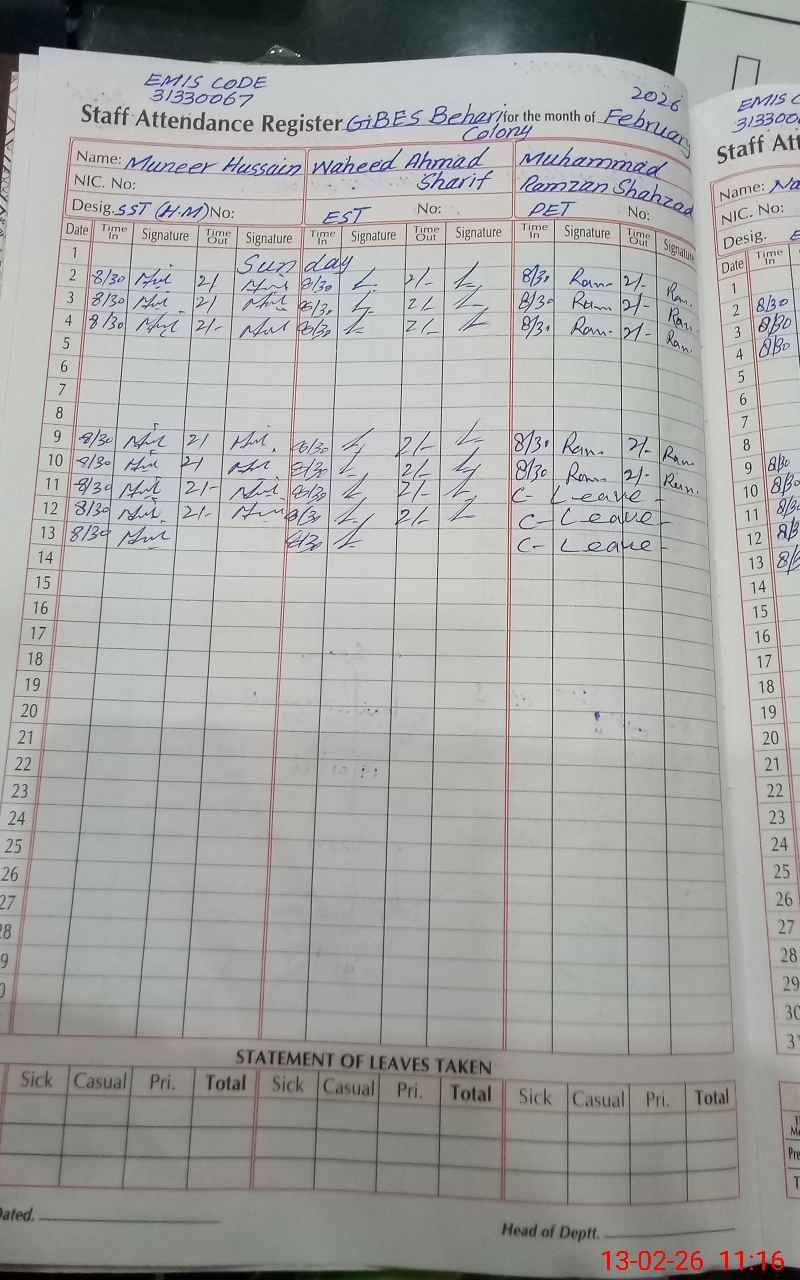 EMIS CODE
31330067
2026
Staff Attendance Register GiBES Behari Colony for the month of February
Name: Muneer Hussain Waheed Ahmad Sharif Muhammad Ramzan Shahzad
NIC. No:
Desig. SST (H.M) No: EST No: PET No:
Date Time In Signature Time Out Signature Time In Signature Time Out Signature Time In Signature Time Out Signature
1 Sunday
2 8/30 2/ 8/30 2/- 8/30 Ram. 2/- Ram.
3 8/30 2/ 8/30 2/ 8/30 Ram 2/- Ram
4 8/30 2/- 8/30 2/- 8/30 Ram. 2/- Ram.
5
6
7
8
9 8/30 2/ 8/30 2/- 8/30 Ram. 2/- Ram
10 8/30 2/ 8/30 2/- 8/30 Ram. 2/- Ram.
11 8/30 2/- 8/30 2/- C- Leave-
12 8/30 2/- 8/30 2/- C- Leave-
13 8/30 8/30 C- Leave-
14
15
16
17
18
19
20
21
22
23
24
25
26
27
28
9
0
STATEMENT OF LEAVES TAKEN
Sick Casual Pri. Total Sick Casual Pri. Total Sick Casual Pri. Total
Dated.
Head of Deptt.
EMIS C
313300
Staff Att
Name: Na
NIC. No:
Desig.
Date Time In
1
2 8/30
3 8/30
4 8/30
5
6
7
8
9 8/30
10 8/30
11 8/30
12 8/3
13 8/3
14
15
16
17
18
19
20
21
22
23
24
25
26
27
28
29
30
3
13-02-26 11:16